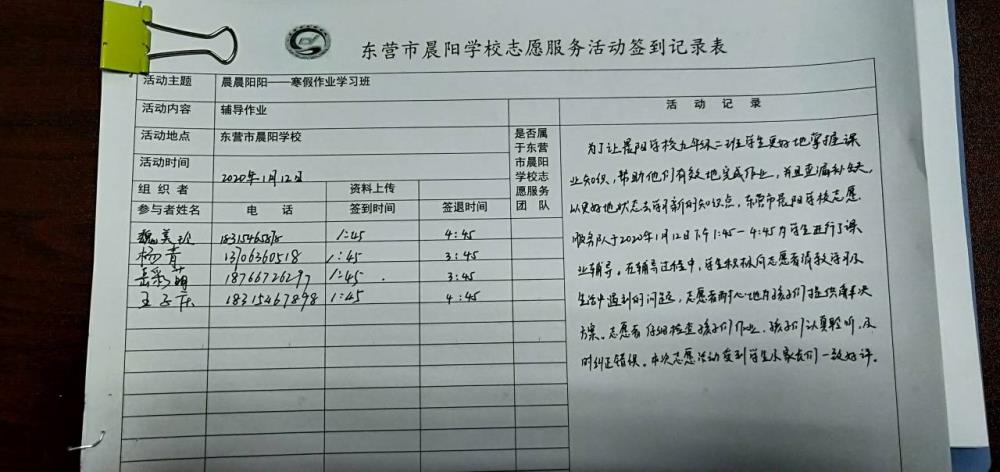 东营市晨阳学校志愿服务活动签到记录表
活动主题 晨晨阳阳——寒假作业学习班
活动内容 辅导作业
活动地点 东营市晨阳学校
活动时间 2020年1月12日
组织者 资料上传
参与者姓名 电话 签到时间 签退时间
魏美玲 18315465878 1:45 4:45
杨青 13706360518 1:45 3:45
岳彩萌 18766726297 1:45 3:45
王子庆 18315467898 1:45 4:45
是否属
于东营
市晨阳
学校志
愿服务
团队
活动记录
为了让晨阳学校九年级二班学生更好地掌握课
业知识，帮助他们有效地完成作业，并且查漏补缺，
以更好地状态去学习新的知识点，东营市晨阳学校志愿
服务队于2020年1月12日下午1:45-4:45为学生进行了课
业辅导。在辅导过程中，学生积极向志愿者请教学习及
生活中遇到的问题，志愿者耐心地为孩子们提供解决
方案。志愿者仔细检查孩子们作业，孩子们认真聆听，及
时纠正错误。本次志愿活动受到学生及家长们一致好评。